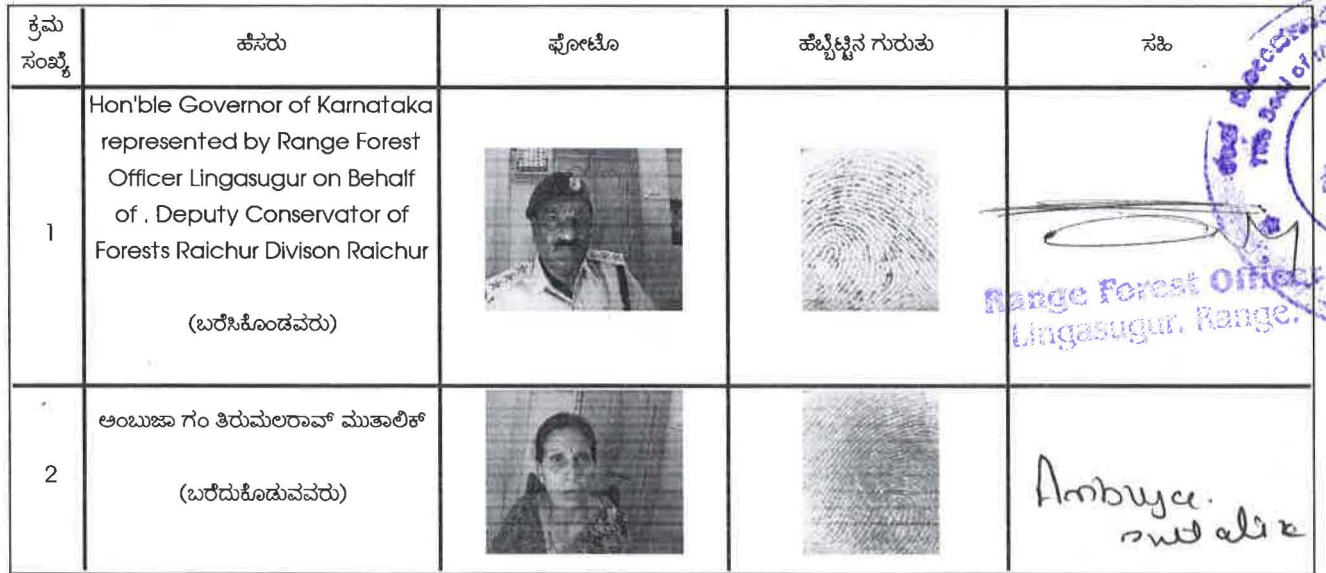 ಕ್ರಮ ಸಂಖ್ಯೆ
ಹೆಸರು
ಫೋಟೊ
ಹೆಬ್ಬೆಟ್ಟಿನ ಗುರುತು
ಸಹಿ
1
Hon'ble Governor of Karnataka
represented by Range Forest
Officer Lingasugur on Behalf
of . Deputy Conservator of
Forests Raichur Divison Raichur
(ಬರೆಸಿಕೊಂಡವರು)
Range Forest Officer
Lingasugur, Range.
2
ಅಂಬುಜಾ ಗಂ ತಿರುಮಲರಾವ್ ಮುತಾಲಿಕ್
(ಬರೆದುಕೊಡುವವರು)
Ambuja.
mutalik